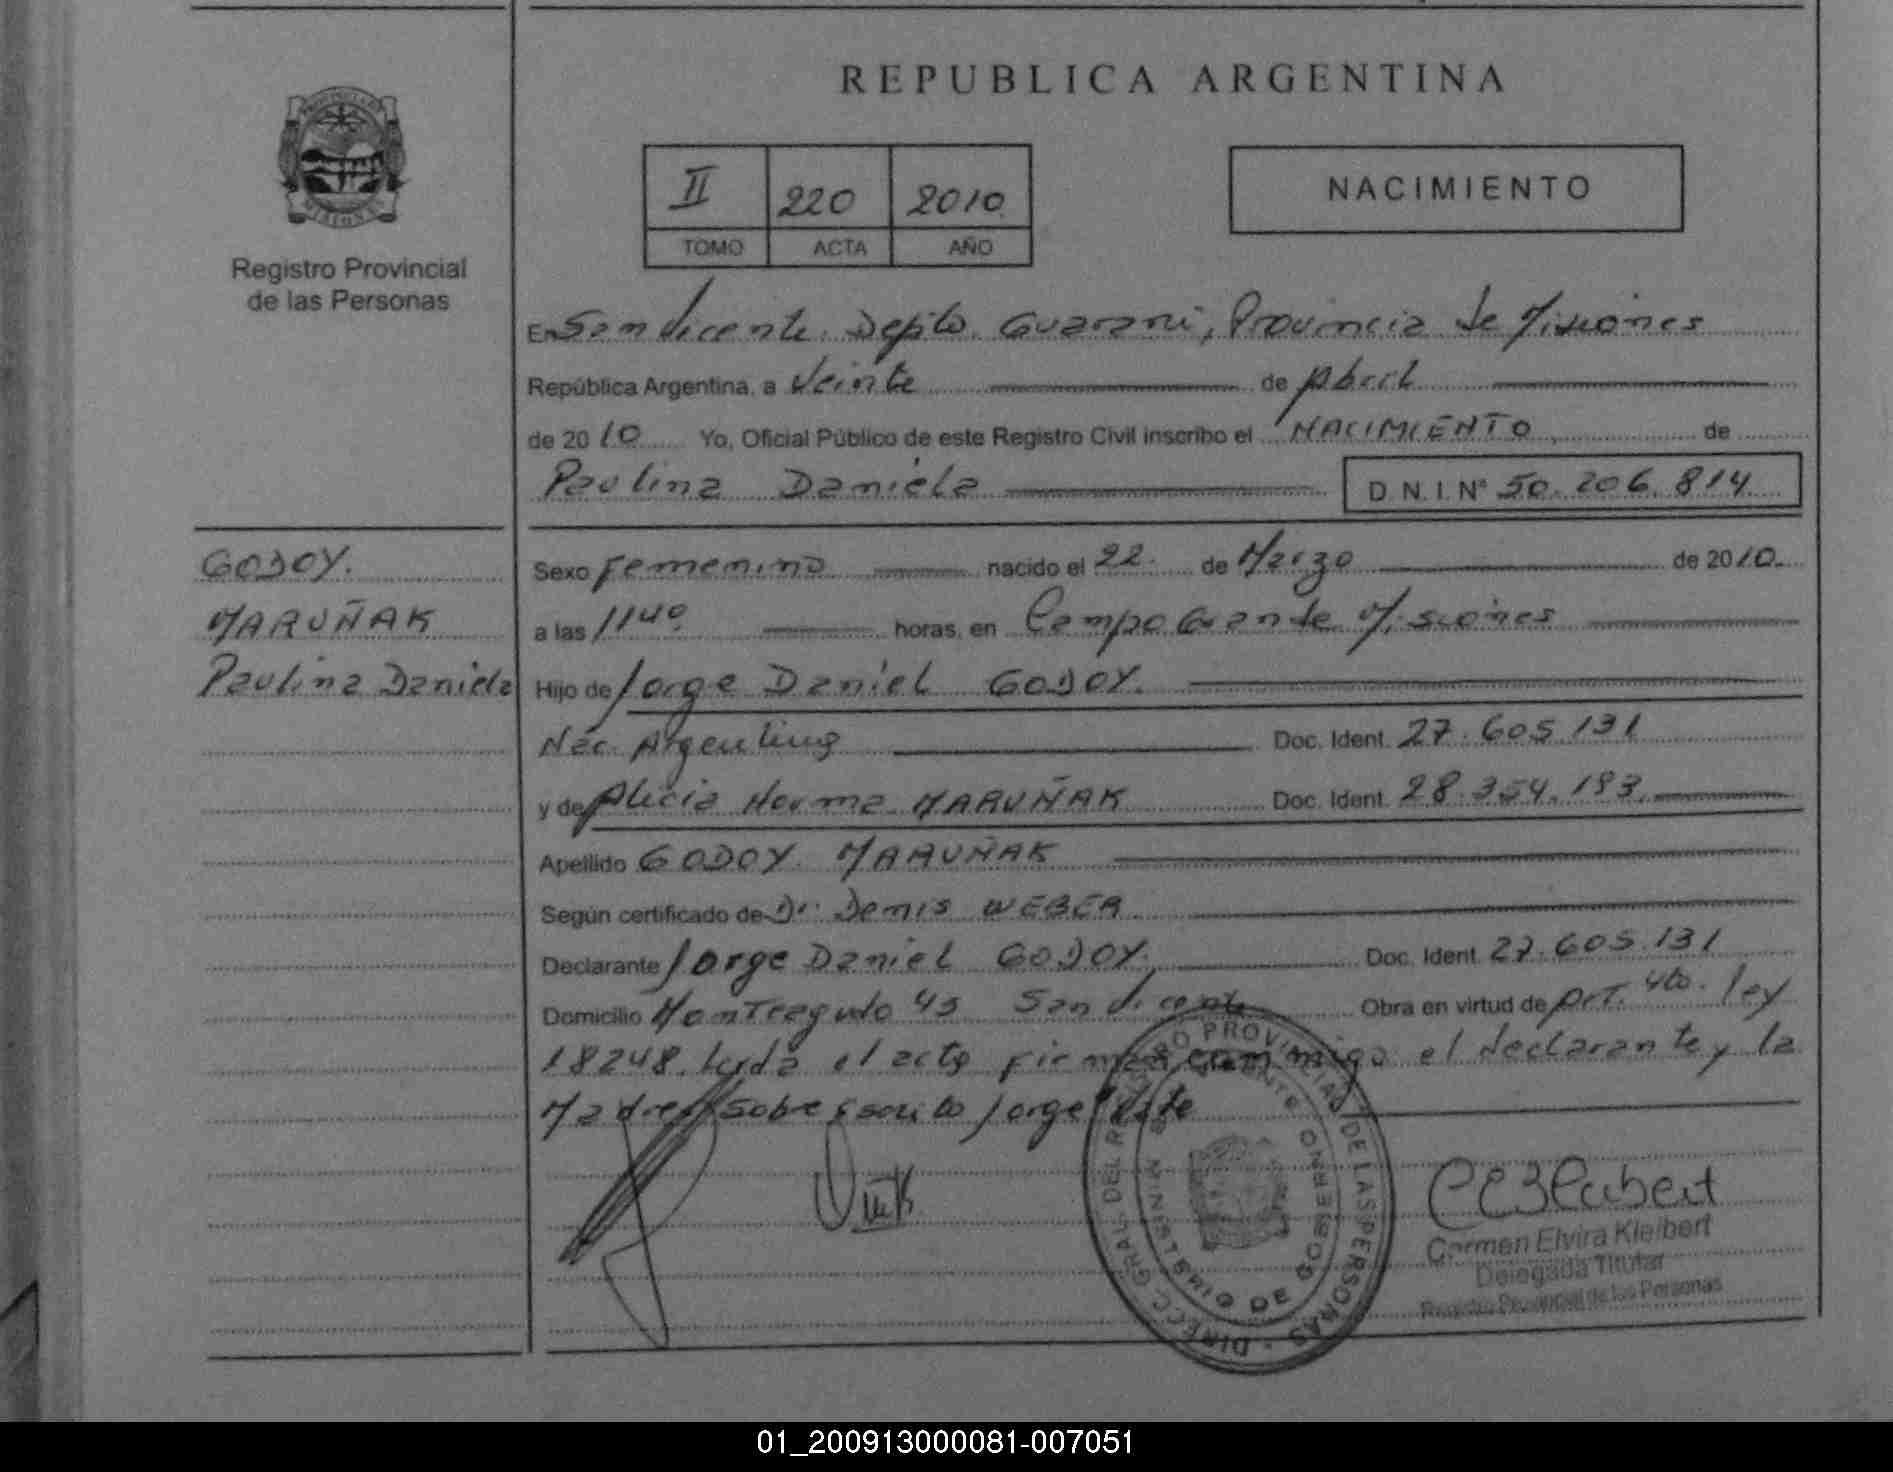 REPUBLICA ARGENTINA
PROVINCIA DE MISIONES
Registro Provincial
de las Personas
II 220 2010
TOMO ACTA AÑO
NACIMIENTO
En San Vicente Depto. Guarani, Provincia de Misiones
República Argentina, a Veinte de Abril
de 2010 Yo, Oficial Público de este Registro Civil inscribo el NACIMIENTO de
Paulina Daniela D.N.I. Nº 50.206.814
GODOY.
MARUÑAK
Paulina Daniela
Sexo Femenino nacido el 22 de Marzo de 2010
a las 1140 horas, en Campo Grande Misiones
Hijo de Jorge Daniel GODOY.
Nac. Argentina Doc. Ident. 27.605.131
y de Alicia Norma MARUÑAK Doc. Ident. 28.354.193
Apellido GODOY MARUÑAK
Según certificado de Dr. Denis WEBER
Declarante Jorge Daniel GODOY. Doc. Ident. 27.605.131
Domicilio Monteagudo 45 San Vicente Obra en virtud de Art. 4to. ley
18248. Leida el acta firman conmigo el declarante y la
Madre Sobre Escrito Jorge Vale
DIRECC. GRAL. DEL REGISTRO PROVINCIAL DE LAS PERSONAS
MINISTERIO DE GOBIERNO
Carmen Elvira Kleibert
Delegada Titular
Registro Provincial de las Personas
01_200913000081-007051